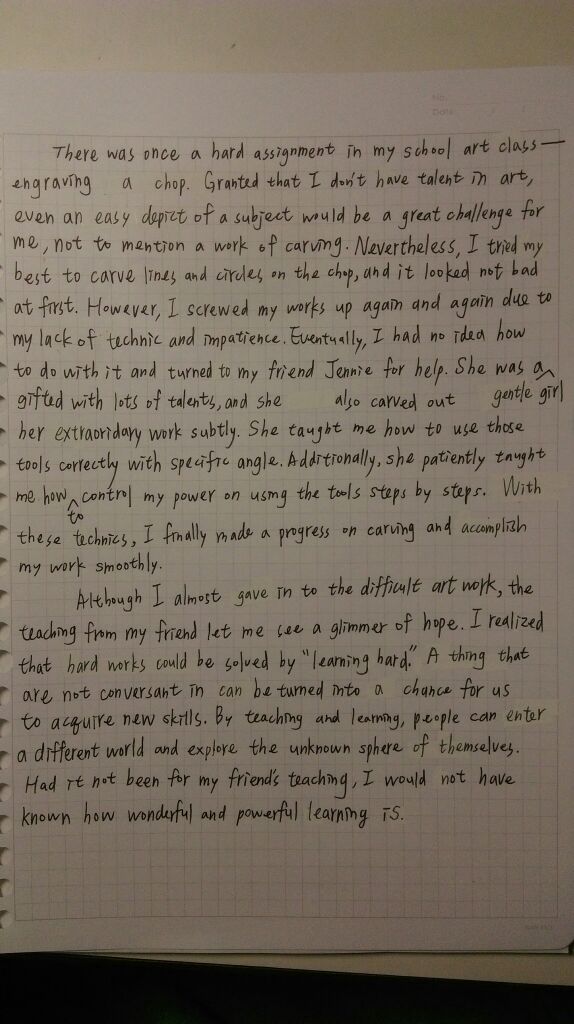 No.
Date
There was once a hard assignment in my school art class—
engraving a chop. Granted that I don't have talent in art,
even an easy depict of a subject would be a great challenge for
me, not to mention a work of carving. Nevertheless, I tried my
best to carve lines and circles on the chop, and it looked not bad
at first. However, I screwed my works up again and again due to
my lack of technic and impatience. Eventually, I had no idea how
to do with it and turned to my friend Jennie for help. She was a
gifted with lots of talents, and she also carved out gentle girl
her extraoridary work subtly. She taught me how to use those
tools correctly with specific angle. Additionally, she patiently taught
me how control my power on using the tools steps by steps. With
to
these technics, I finally made a progress on carving and accomplish
my work smoothly.
Although I almost gave in to the difficult art work, the
teaching from my friend let me see a glimmer of hope. I realized
that hard works could be solved by "learning hard." A thing that
are not conversant in can be turned into a chance for us
to acquire new skills. By teaching and learning, people can enter
a different world and explore the unknown sphere of themselves.
Had it not been for my friend's teaching, I would not have
known how wonderful and powerful learning is.